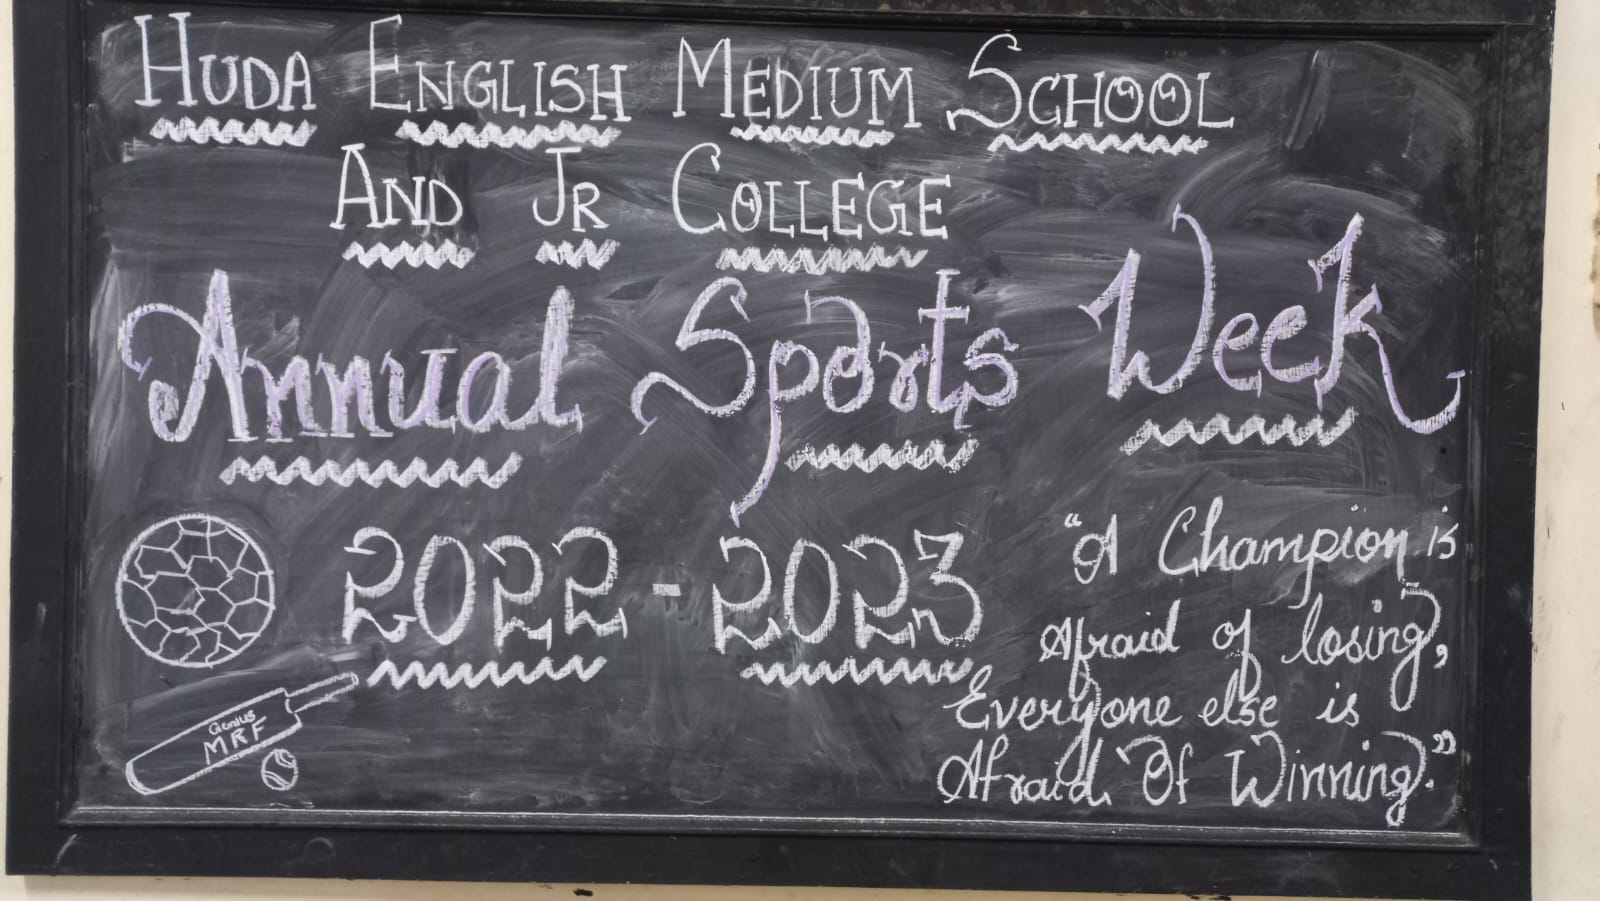 HUDA ENGLISH MEDIUM SCHOOL
AND JR COLLEGE
Annual Sports Week
2022 - 2023
"A Champion is
Afraid of losing,
Everyone else is
Afraid Of Winning."
Genius
MRF